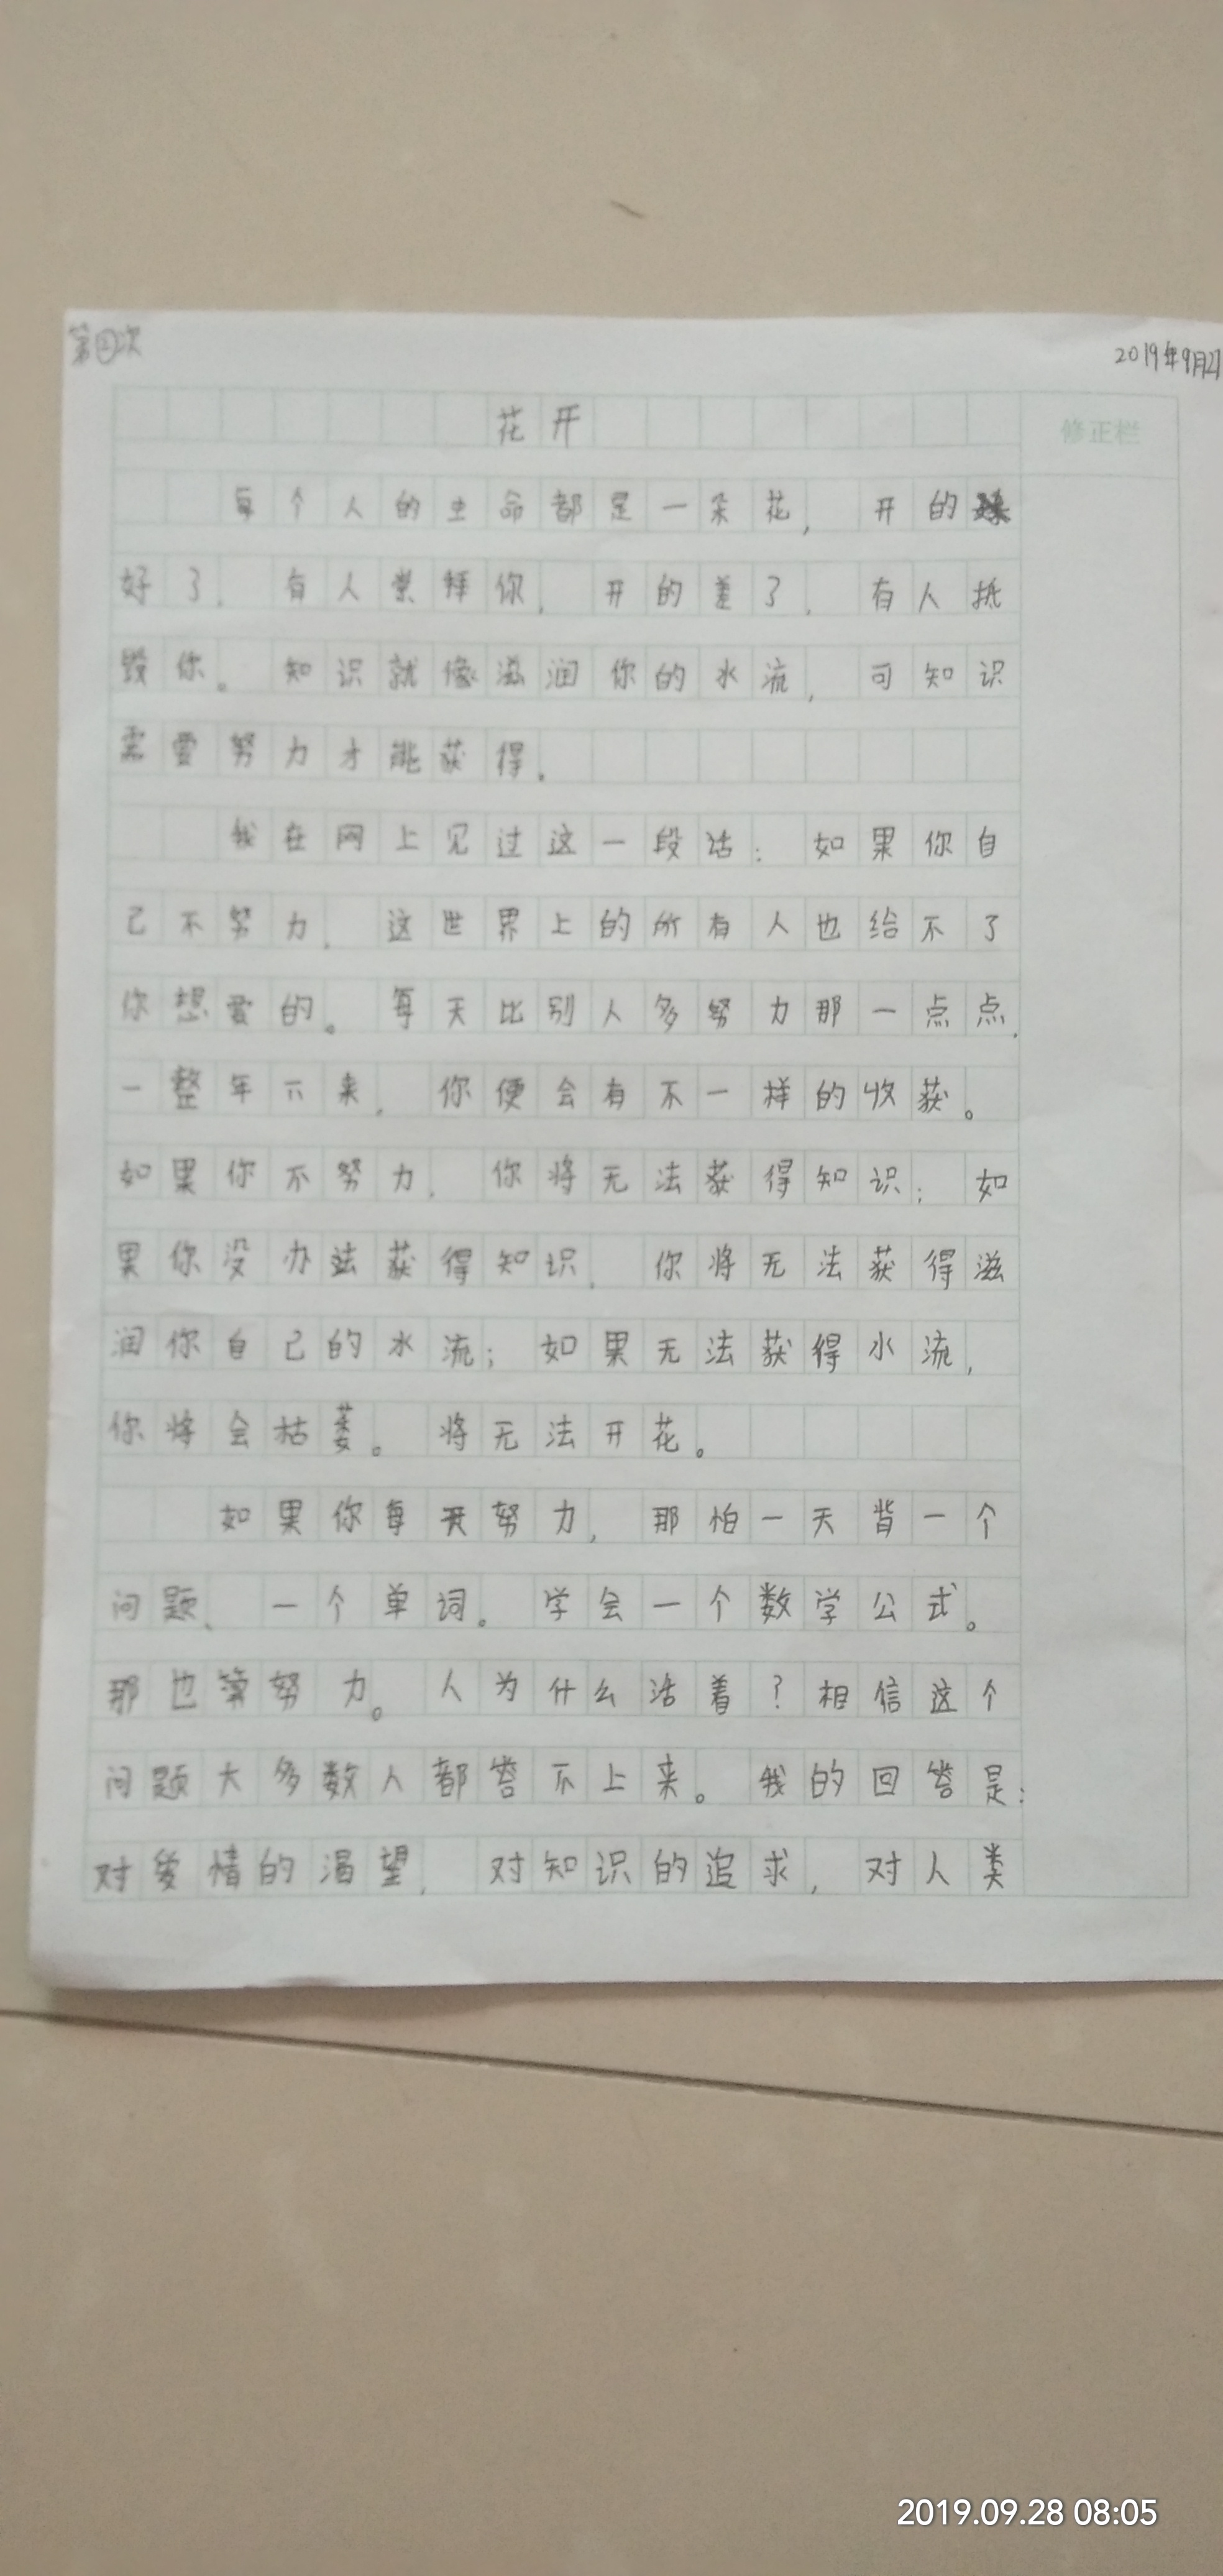 第④次
2019年9月27
花开
修正栏
每个人的生命都是一朵花，开的
好了，有人崇拜你，开的差了，有人抵
毁你。知识就像滋润你的水流，可知识
需要努力才能获得。
我在网上见过这一段话：如果你自
己不努力，这世界上的所有人也给不了
你想要的。每天比别人多努力那一点点，
一整年下来，你便会有不一样的收获。
如果你不努力，你将无法获得知识；如
果你没办法获得知识，你将无法获得滋
润你自己的水流；如果无法获得水流，
你将会枯萎。将无法开花。
如果你每天努力，那怕一天背一个
问题、一个单词。学会一个数学公式。
那也算努力。人为什么活着？相信这个
问题大多数人都答不上来。我的回答是：
对爱情的渴望，对知识的追求，对人类
2019.09.28 08:05